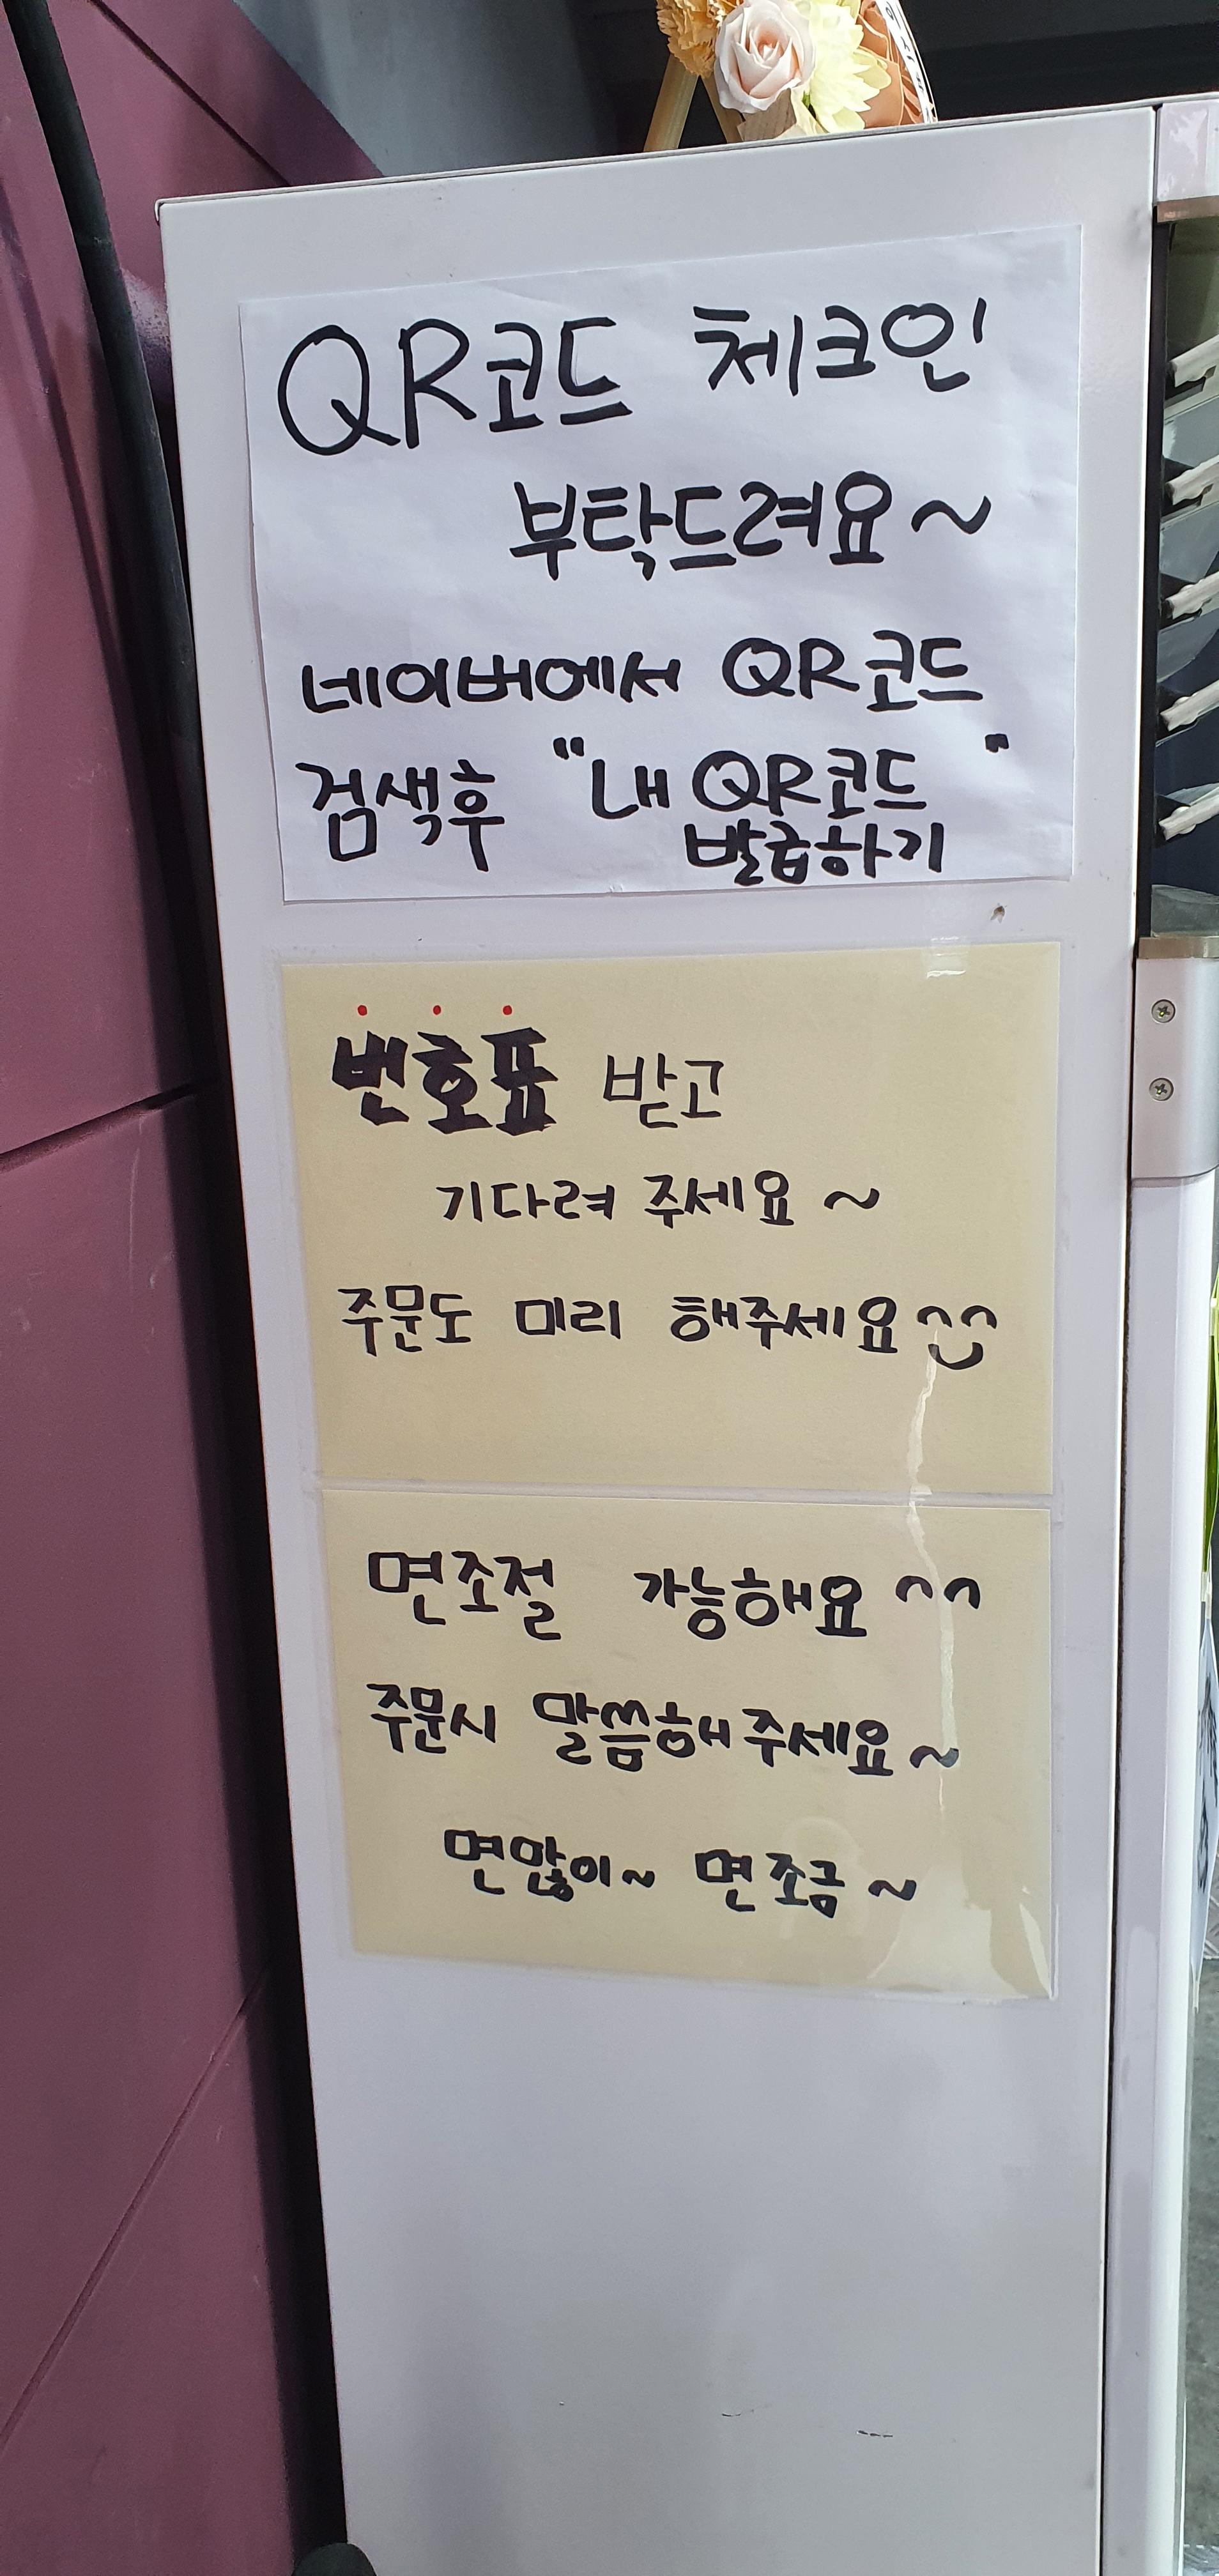 QR코드 체크인
부탁드려요~
네이버에서 QR코드
검색후 "내 QR코드"
발급하기
번호표 받고
기다려 주세요~
주문도 미리 해주세요^^
면조절 가능해요^^
주문시 말씀해주세요~
면많이~ 면조금~